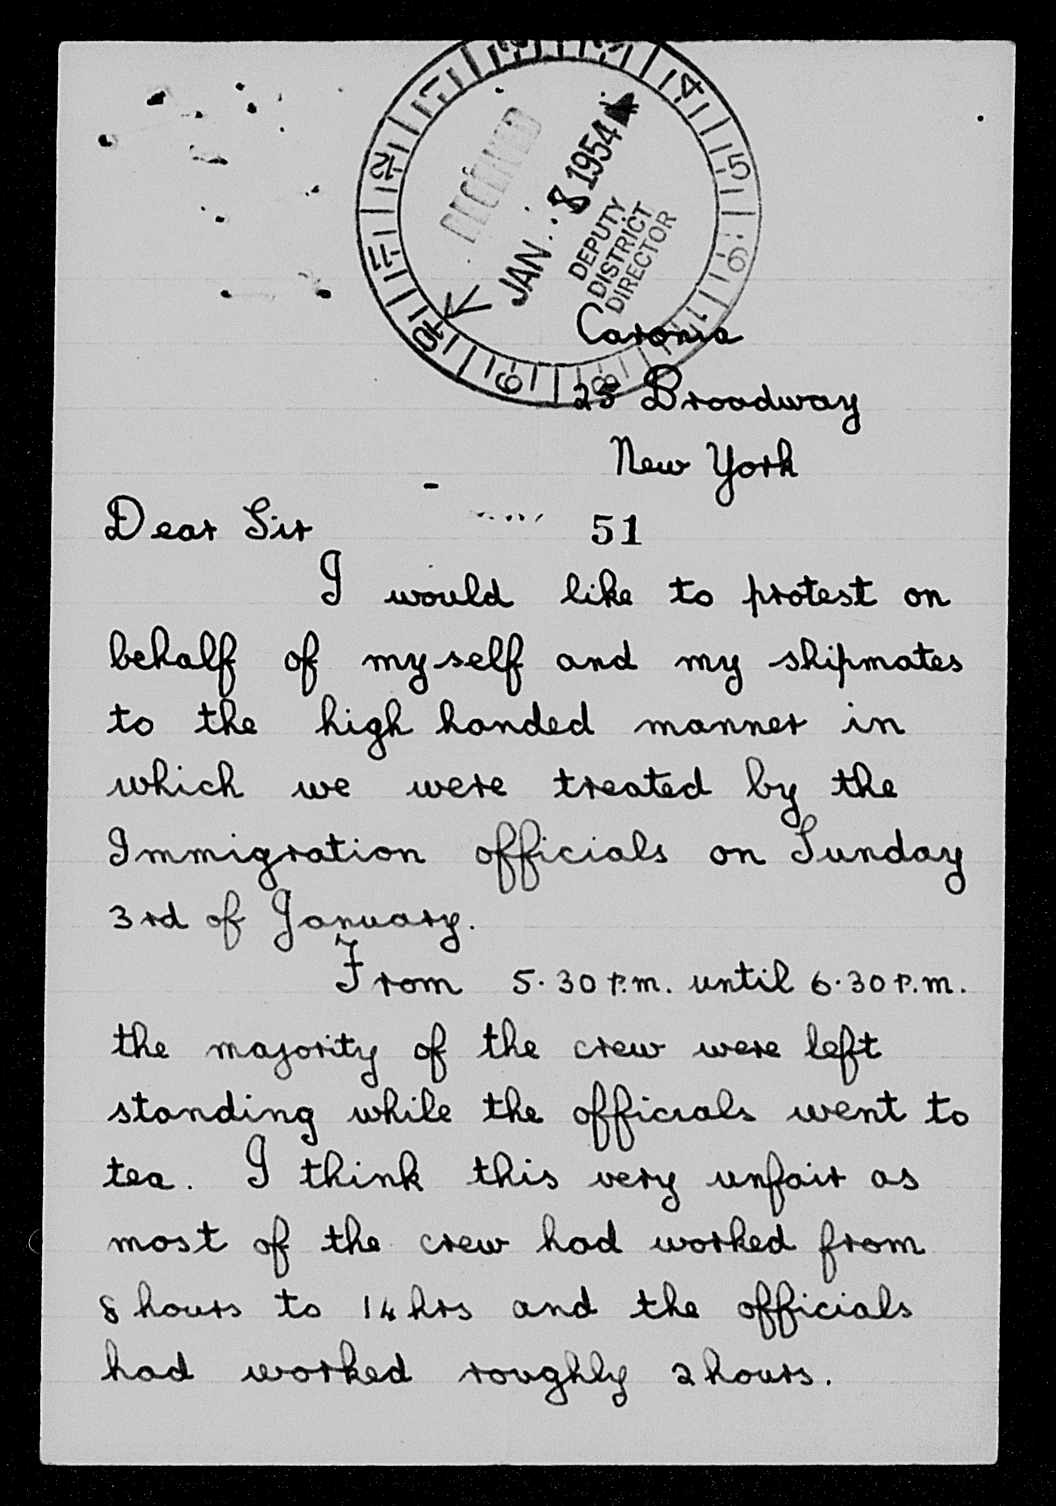 RECEIVED
JAN. 8 1954
DEPUTY
DISTRICT
DIRECTOR
Caronia
25 Broadway
New York
Dear Sir
51
I would like to protest on
behalf of myself and my shipmates
to the high handed manner in
which we were treated by the
Immigration officials on Sunday
3rd of January.
From 5.30 P.m. until 6.30 P.m.
the majority of the crew were left
standing while the officials went to
tea. I think this very unfair as
most of the crew had worked from
8 hours to 14 hrs and the officials
had worked roughly 2 hours.